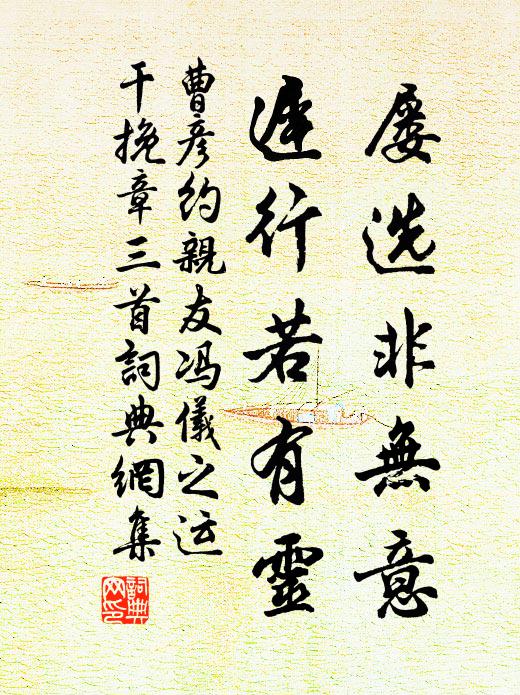 屡选非無意
遲行若有靈
曹彦约親友冯儀之运
干挽章三首詞典網集
詞典网印